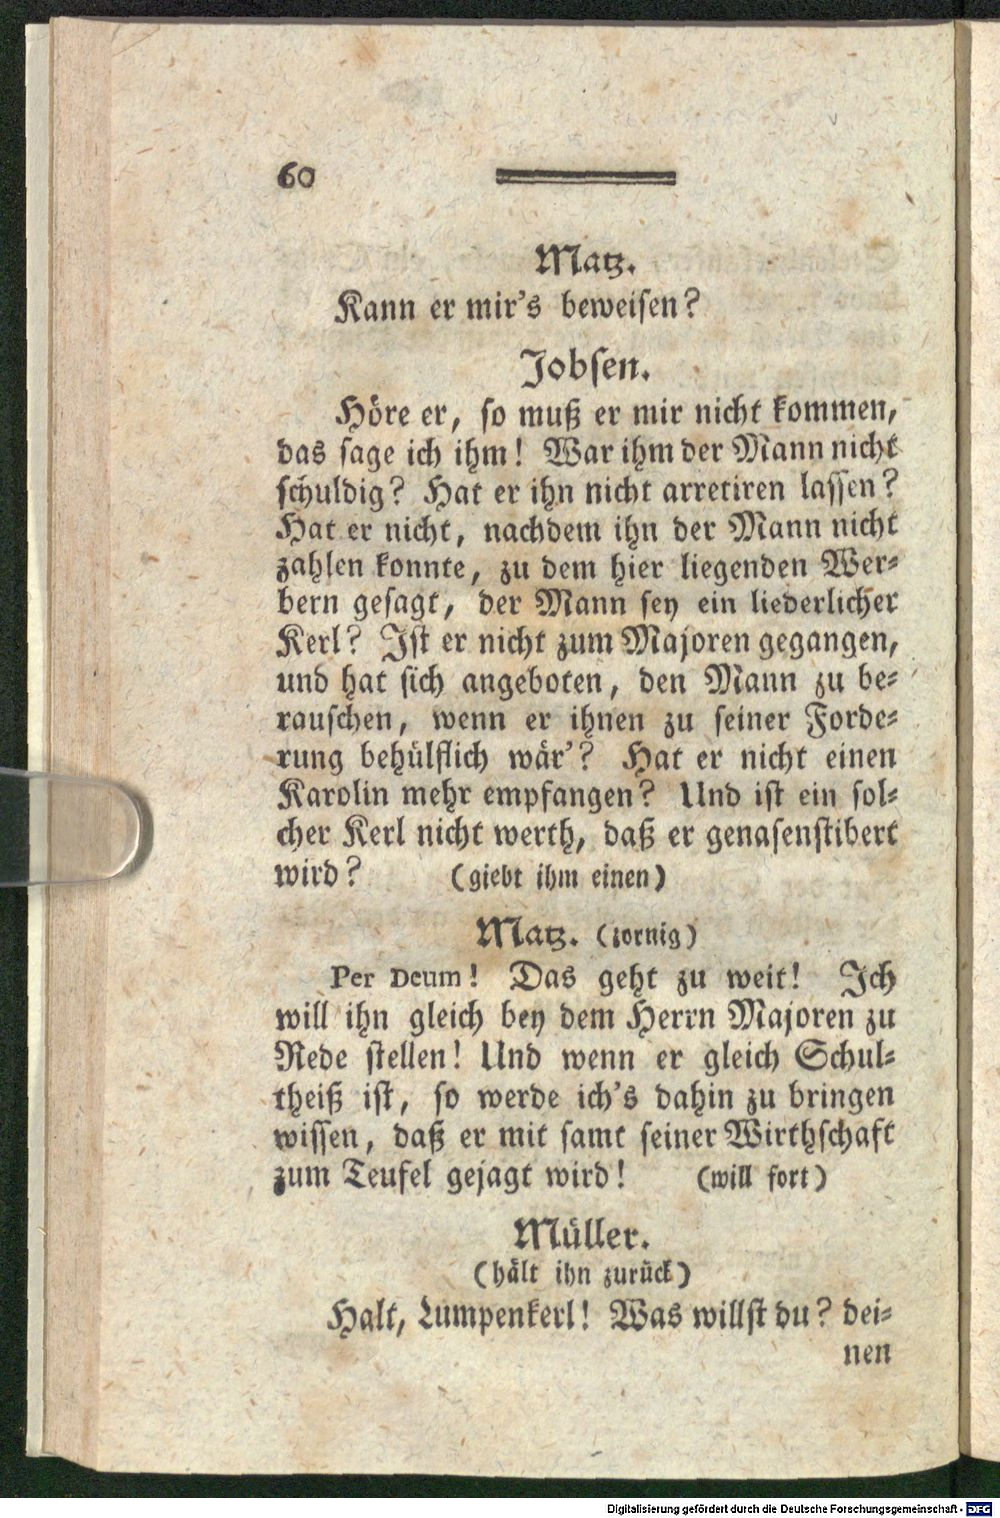 60
Matz.
Kann er mir's beweisen?
Jobsen.
Höre er, so muß er mir nicht kommen,
das sage ich ihm! War ihm der Mann nicht
schuldig? Hat er ihn nicht arretiren lassen?
Hat er nicht, nachdem ihn der Mann nicht
zahlen konnte, zu dem hier liegenden Wer-
bern gesagt, der Mann sey ein liederlicher
Kerl? Ist er nicht zum Majoren gegangen,
und hat sich angeboten, den Mann zu be-
rauschen, wenn er ihnen zu seiner Forde-
rung behülflich wär'? Hat er nicht einen
Karolin mehr empfangen? Und ist ein sol-
cher Kerl nicht werth, daß er genasenstibert
wird? (giebt ihm einen)
Matz. (zornig)
Per Deum! Das geht zu weit! Ich
will ihn gleich bey dem Herrn Majoren zu
Rede stellen! Und wenn er gleich Schul-
theiß ist, so werde ich's dahin zu bringen
wissen, daß er mit samt seiner Wirthschaft
zum Teufel gejagt wird! (will fort)
Müller.
(hält ihn zurück)
Halt, Lumpenkerl! Was willst du? dei-
nen
Digitalisierung gefördert durch die Deutsche Forschungsgemeinschaft - DFG